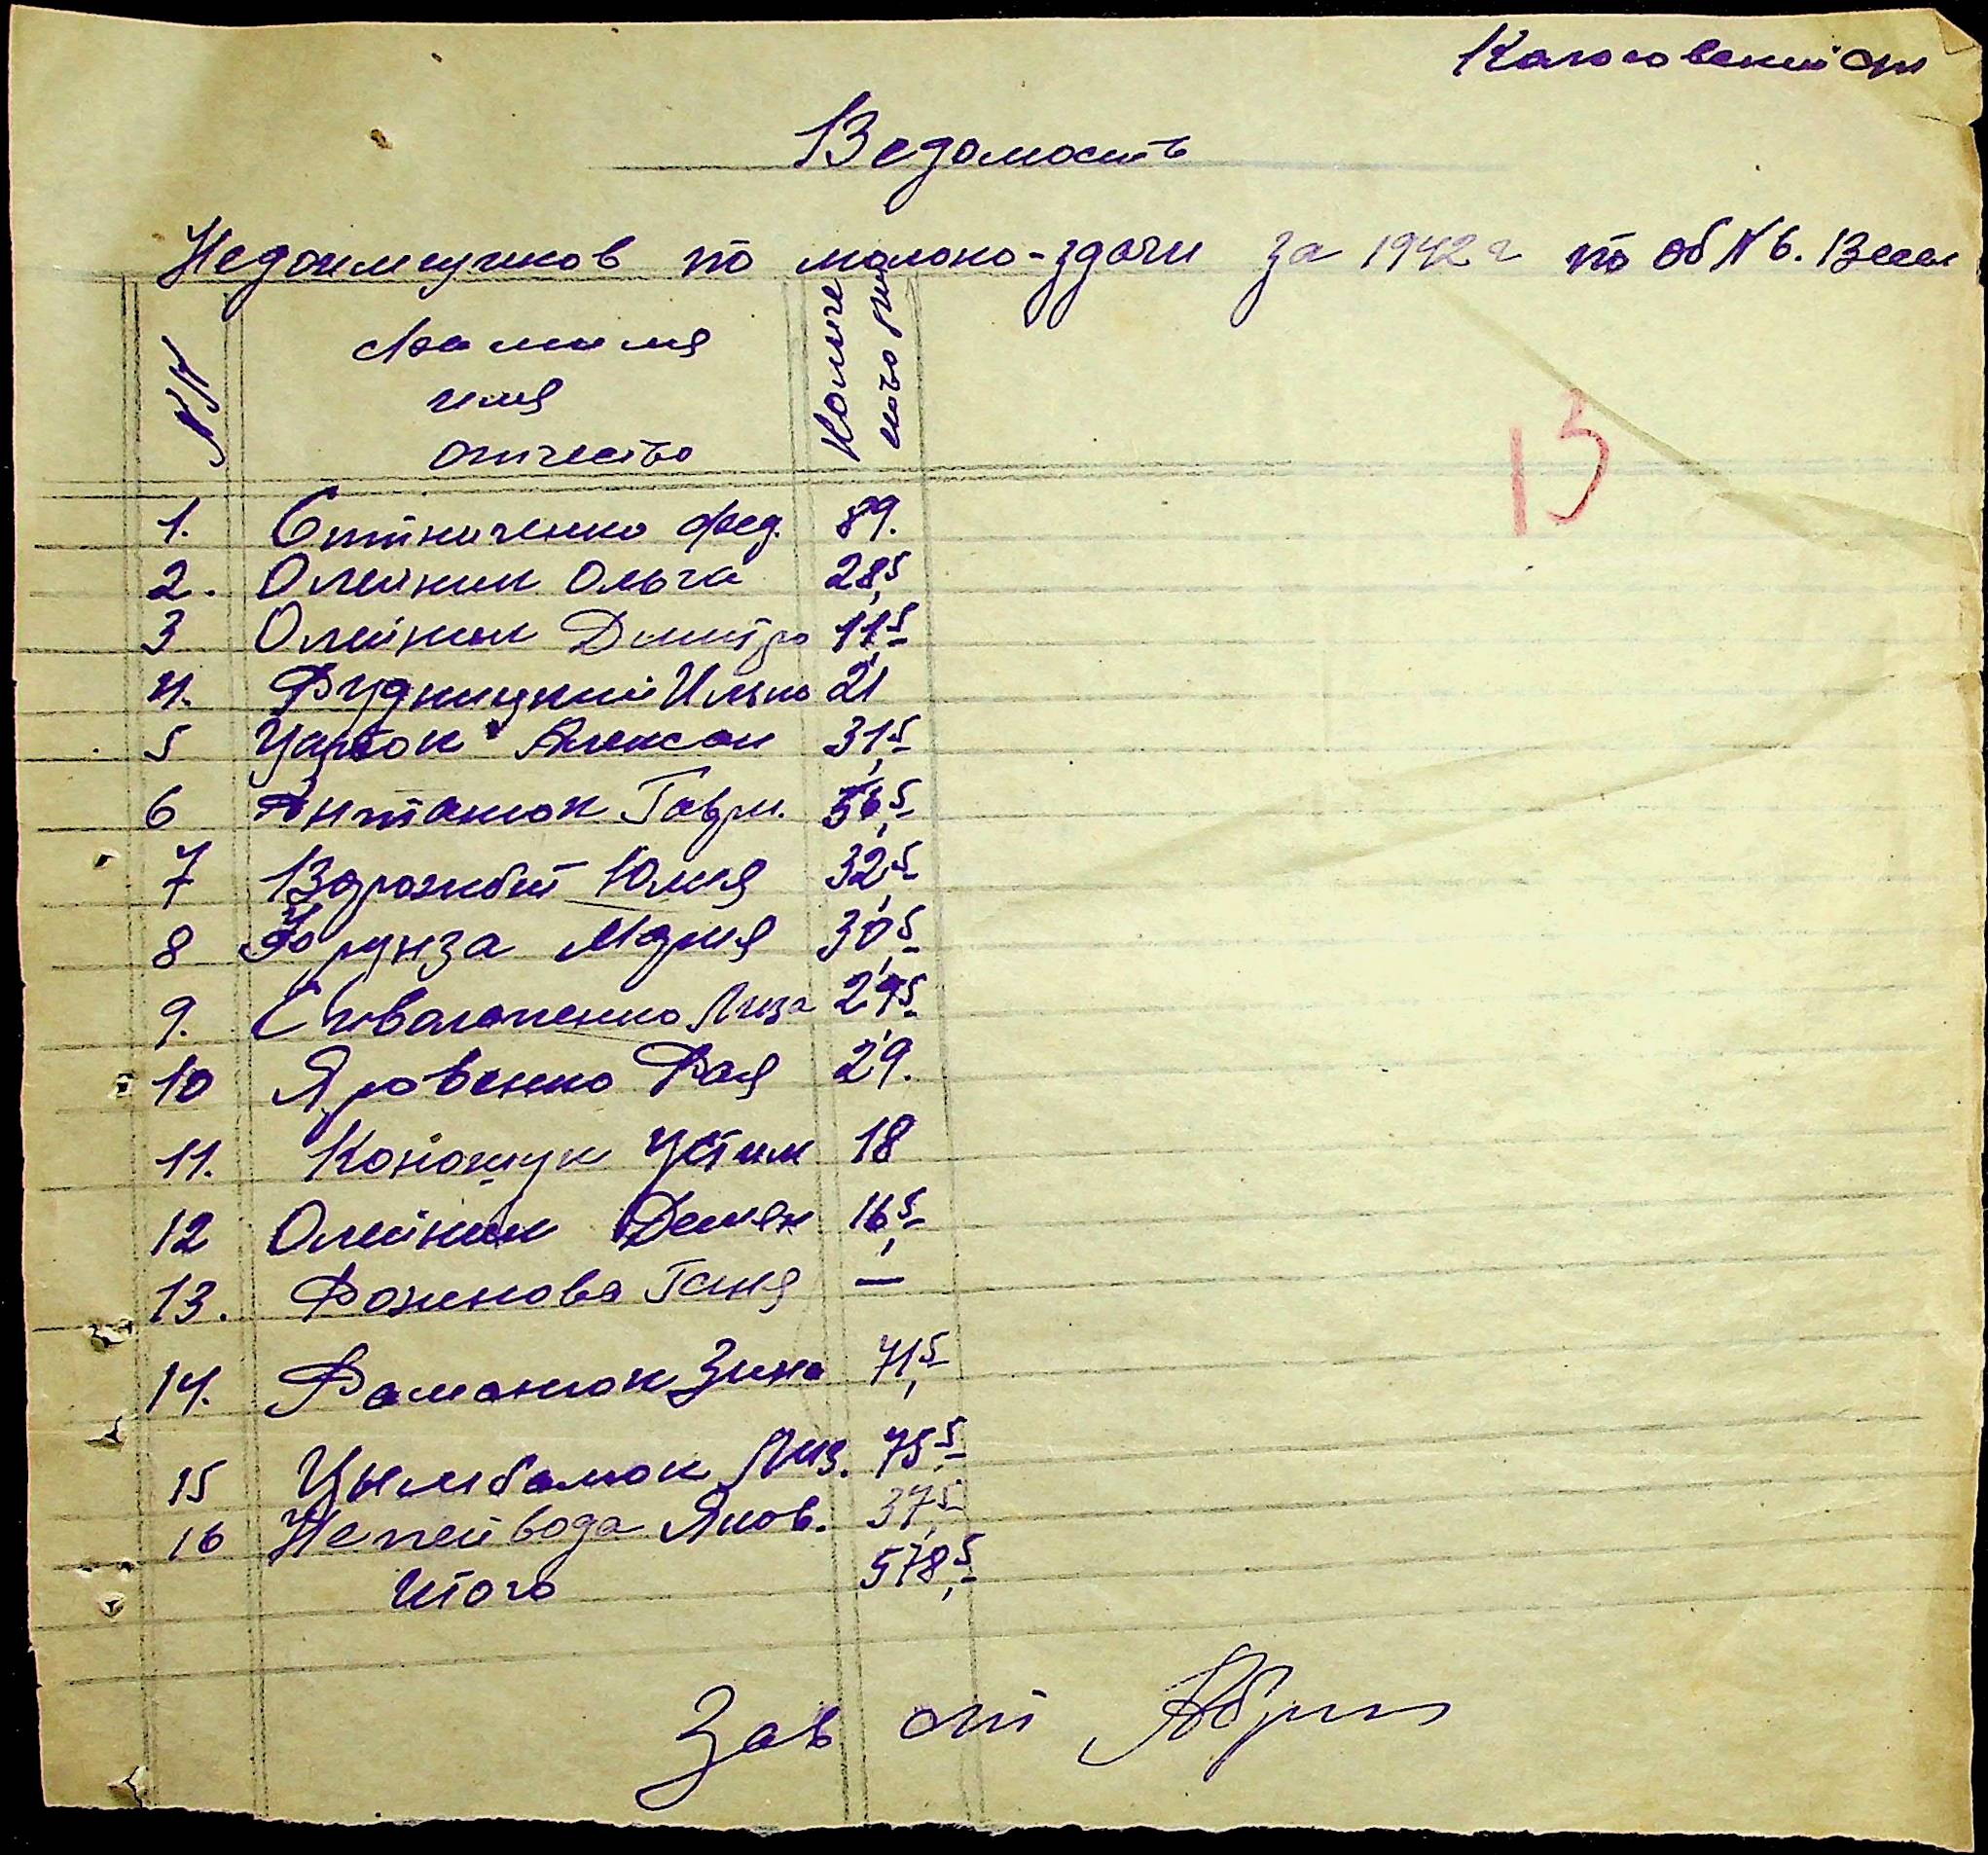 Колосовский
Ведомость
Недоимщиков по молоко-здачи за 1942 г по об N 6.
NN
Фамилия
имя
отчество
Количе
ство
15
1. Ситниченко Фед. 89.
2. Олейник Ольга 28,5
3 Олейник Дмитро 11,5
4. Рудницкий Илько 21
5 Алексан 31,5
6 Антонюк Гаври. 56,5
7 Ворожбит Юлия 32,5
8 Фрунза Мария 30,5
9. Сиволапенко Лиза
10 Яровенко Рая 29.
11. Конощук Устим 18
12 Олейник Демян 16,5
13. Рожкова Ганя —
14. Романюк Зина 71,5
15 Цымбалюк Лиз. 75,5
16 Непейвода Яков. 37,5
Итого 578,5
Зав